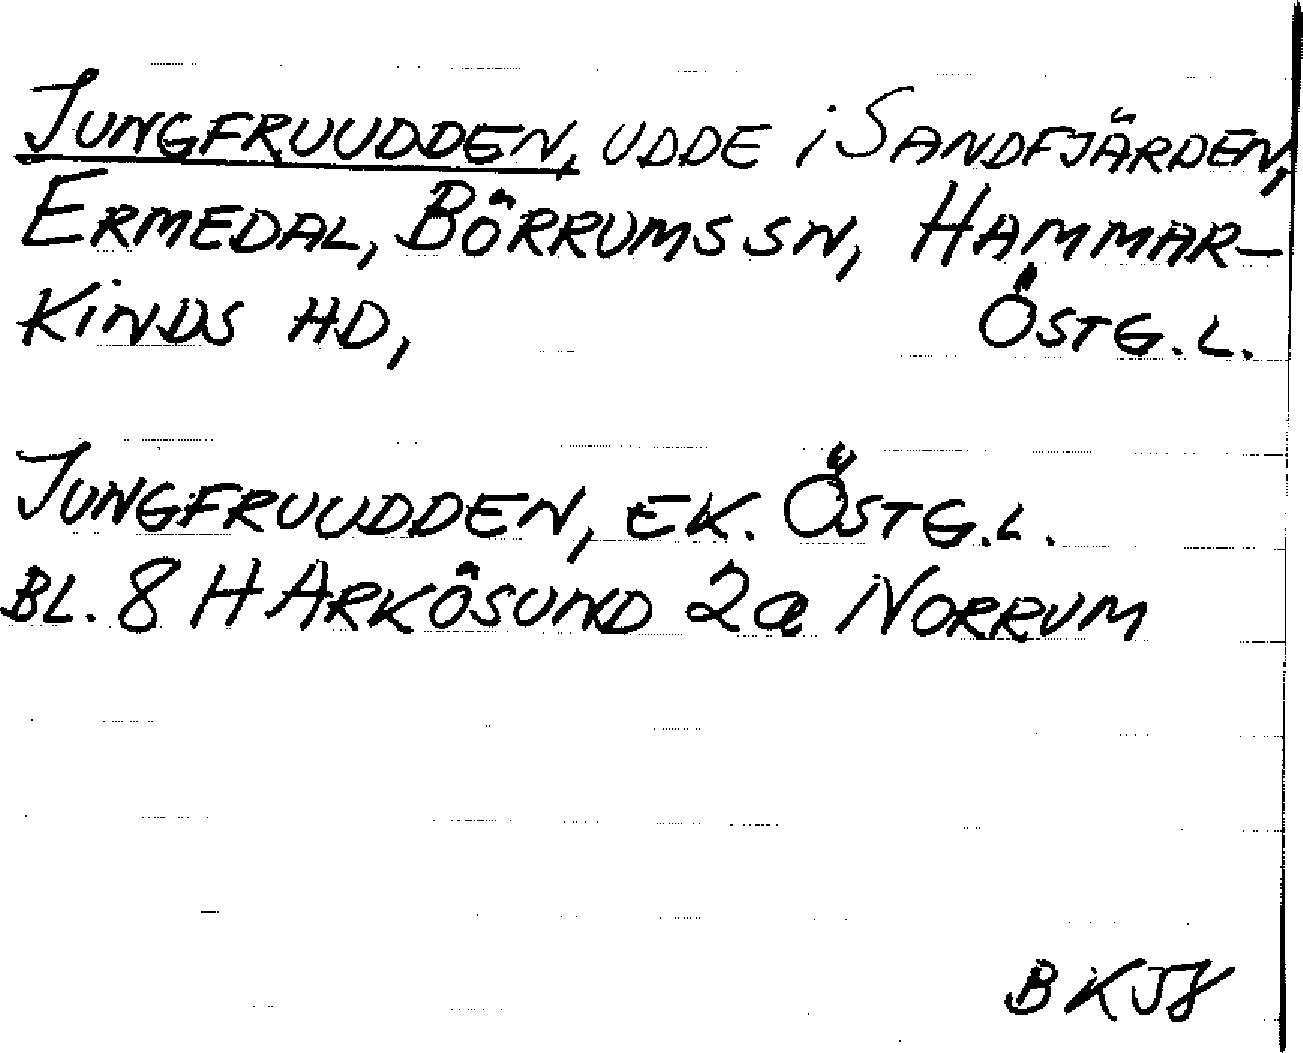 JUNGFRUUDDEN, UDDE i SANDFJÄRDEN,
ERMEDAL, BÖRRUMS SN, HAMMAR-
KINDS HD, ÖSTG.L.
JUNGFRUUDDEN, EK. ÖSTG.L.
BL. 8 HARKÖSUND 2a NORRUM